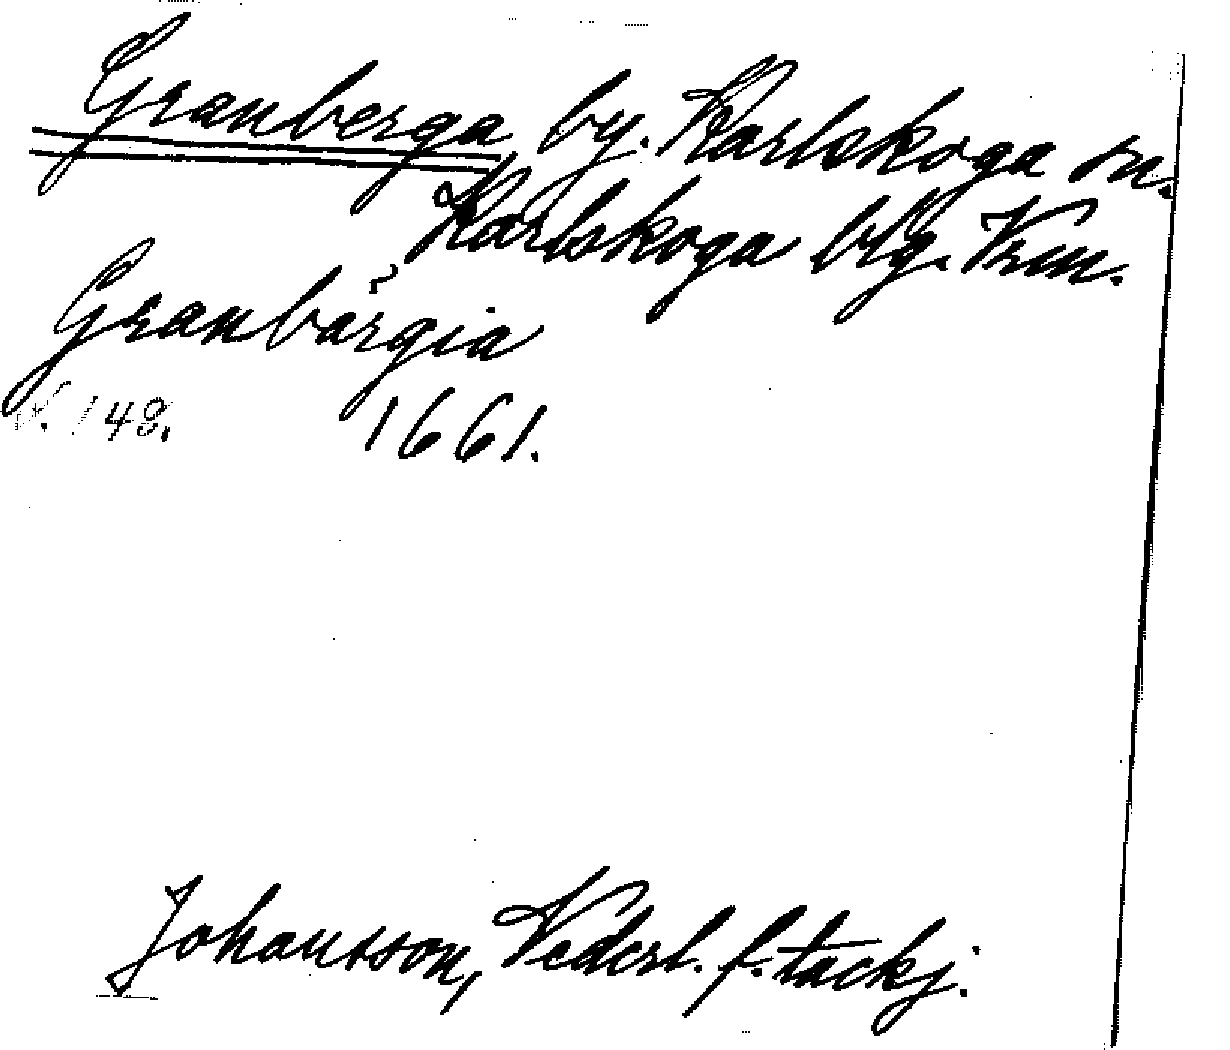 Granberga by. Karlskoga sn.
Karlskoga blg. Vrm.
Granbärgia
s. 148. 1661.
Johansson, Vederl. f. tackj.